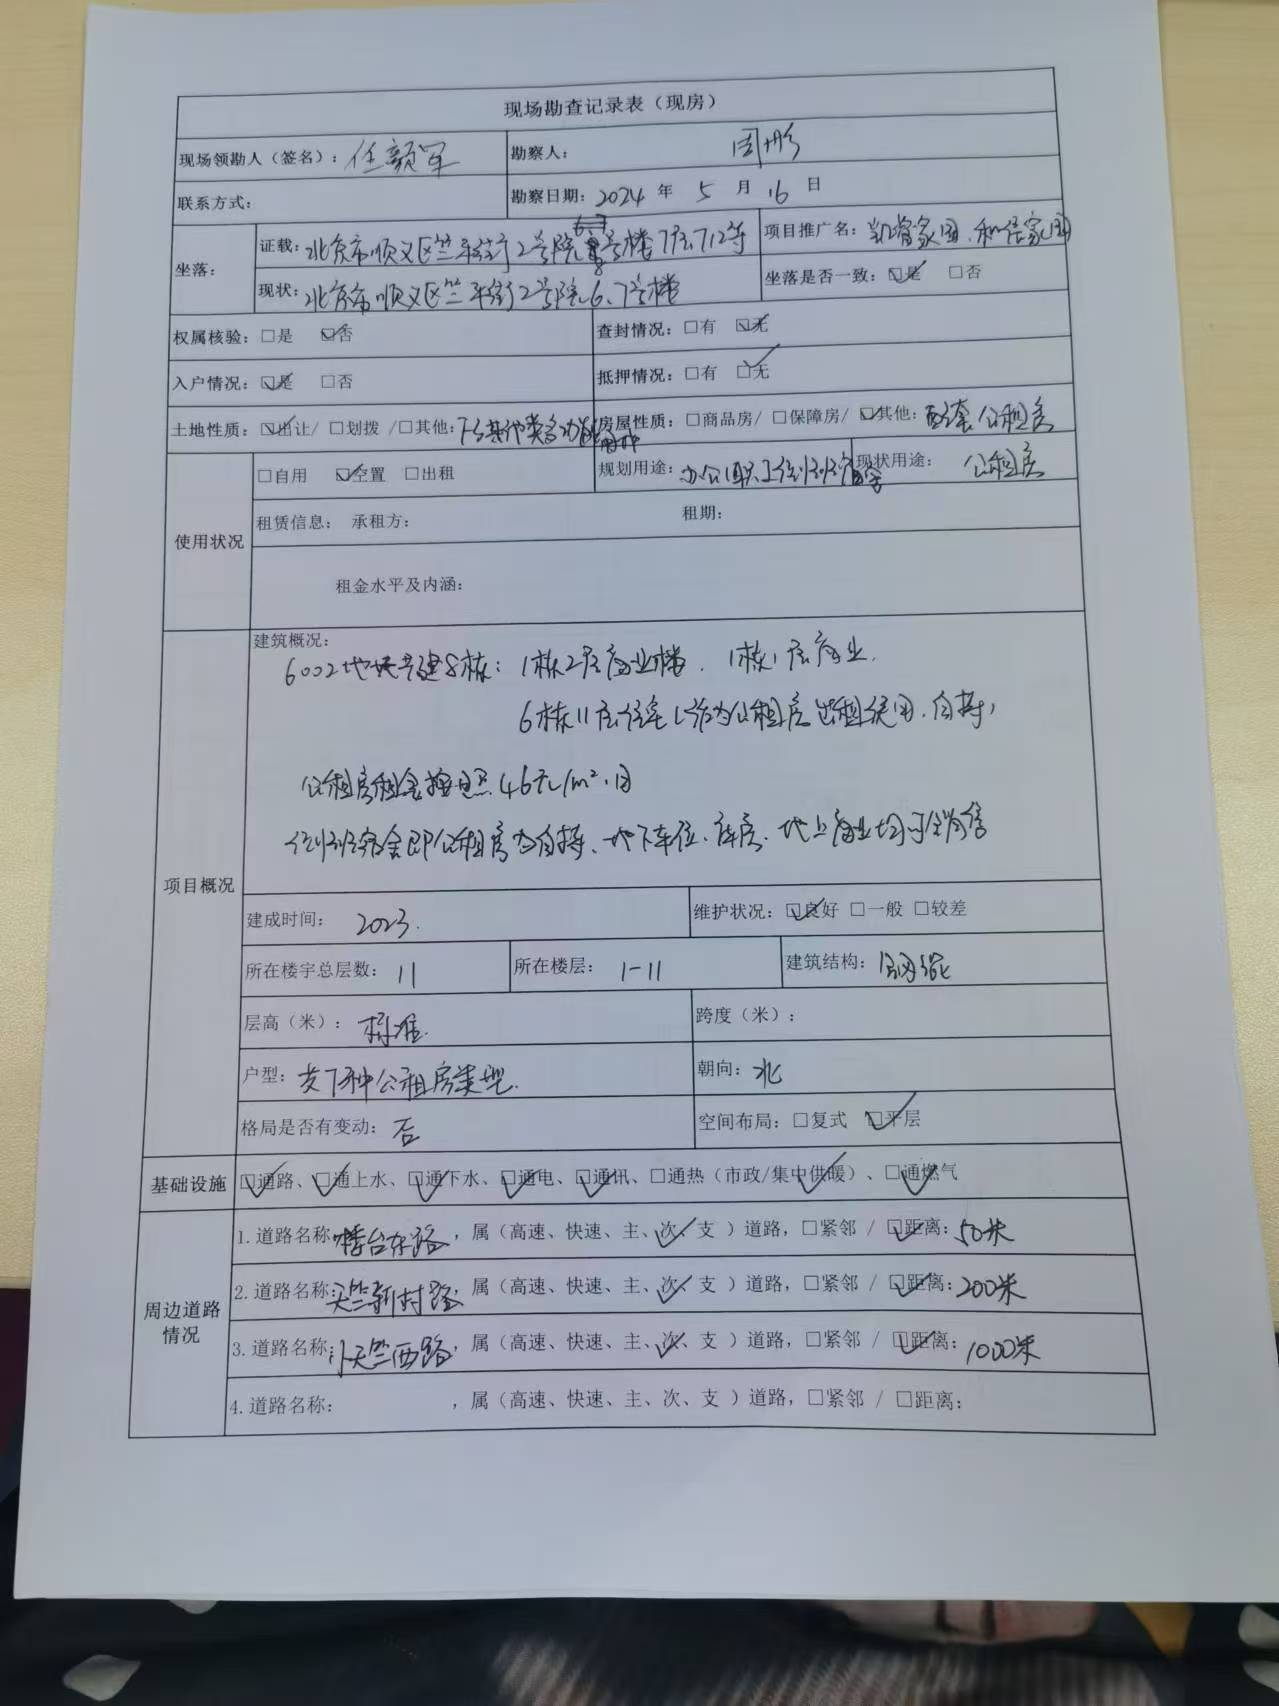 现场勘查记录表（现房）
现场领勘人（签名）：任颜军 勘察人：周彤
联系方式： 勘察日期：2024 年 5 月 16 日
坐落： 证载：北京市顺义区竺平街2号院 号楼7层712等 项目推广名： 家园、和佳家园
现状：北京市顺义区竺平街2号院6、7号楼 坐落是否一致：☑是 □否
权属核验：□是 ☑否 查封情况：□有 ☑无
入户情况：☑是 □否 抵押情况：□有 ☑无
土地性质：☑出让/ □划拨 /□其他：F3其他类多功能用地 房屋性质：□商品房/ □保障房/ ☑其他：配套公租房
使用状况 □自用 ☑空置 □出租 规划用途：办公（职工 宿舍 现状用途：公租房
租赁信息： 承租方： 租期：
租金水平及内涵：
项目概况 建筑概况：
6002地块 建8栋：1栋2层商业楼、1栋1层商业、
6栋11层住宅（作为公租房出租使用、自持）
公租房租金按照46元/m²·月
宿舍即公租房为自持、地下车位、库房、地上商业均可销售
建成时间：2023. 维护状况：☑良好 □一般 □较差
所在楼宇总层数：11 所在楼层：1-11 建筑结构：钢混
层高（米）：标准. 跨度（米）：
户型：共7种公租房类型. 朝向：北
格局是否有变动：否 空间布局：□复式 ☑平层
基础设施 ☑通路、☑通上水、☑通下水、☑通电、☑通讯、□通热（市政/集中供暖✓）、☑通燃气
周边道路情况 1.道路名称：楼台东路，属（高速、快速、主、次✓、支 ）道路，□紧邻 / ☑距离：50米
2.道路名称：天竺新村路，属（高速、快速、主、次✓、支 ）道路，□紧邻 / ☑距离：200米
3.道路名称：小天竺西路，属（高速、快速、主、次✓、支 ）道路，□紧邻 / ☑距离：1000米
4.道路名称： ，属（高速、快速、主、次、支 ）道路，□紧邻 / □距离：